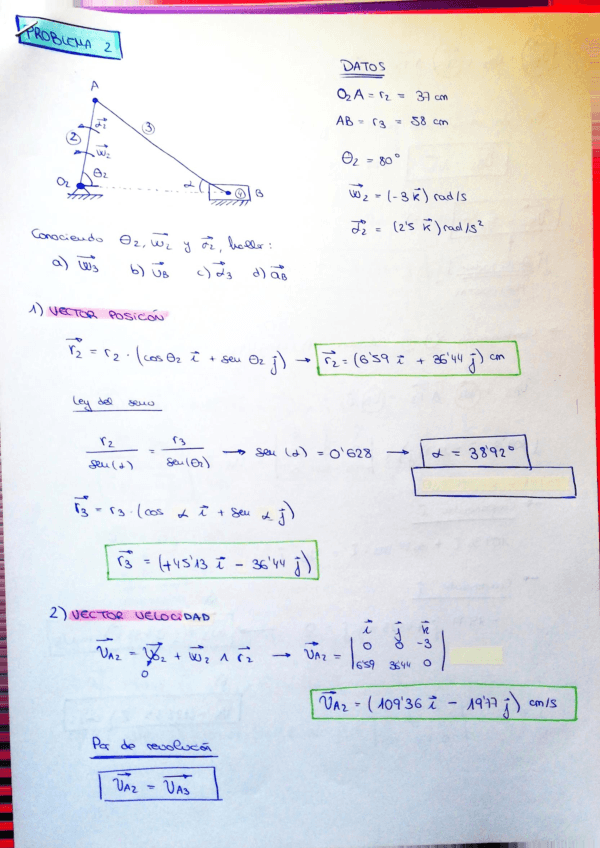 PROBLEMA 2
DATOS
O2A = r2 = 37 cm
AB = r3 = 58 cm
θ2 = 80°
ω2 = (-3 k) rad/s
α2 = (2'5 k) rad/s²
A
②
α2
ω2
③
O2
θ2
α
④
B
Conociendo θ2, ω2 y α2, hallar:
a) ω3 b) vB c) α3 d) aB
1) VECTOR POSICIÓN
r2 = r2 · (cos θ2 i + sen θ2 j) → r2 = (6'59 i + 36'44 j) cm
Ley del seno
r2 / sen(α) = r3 / sen(θ2) → sen (α) = 0'628 → α = 38'92°
r3 = r3 · (cos α i + sen α j)
r3 = (+45'13 i - 36'44 j)
2) VECTOR VELOCIDAD
i j k
vA2 = vO2 + ω2 ∧ r2 → vA2 = | 0 0 -3 |
0
6'59 36'44 0
vA2 = (109'36 i - 19'77 j) cm/s
Par de revolución
vA2 = vA3